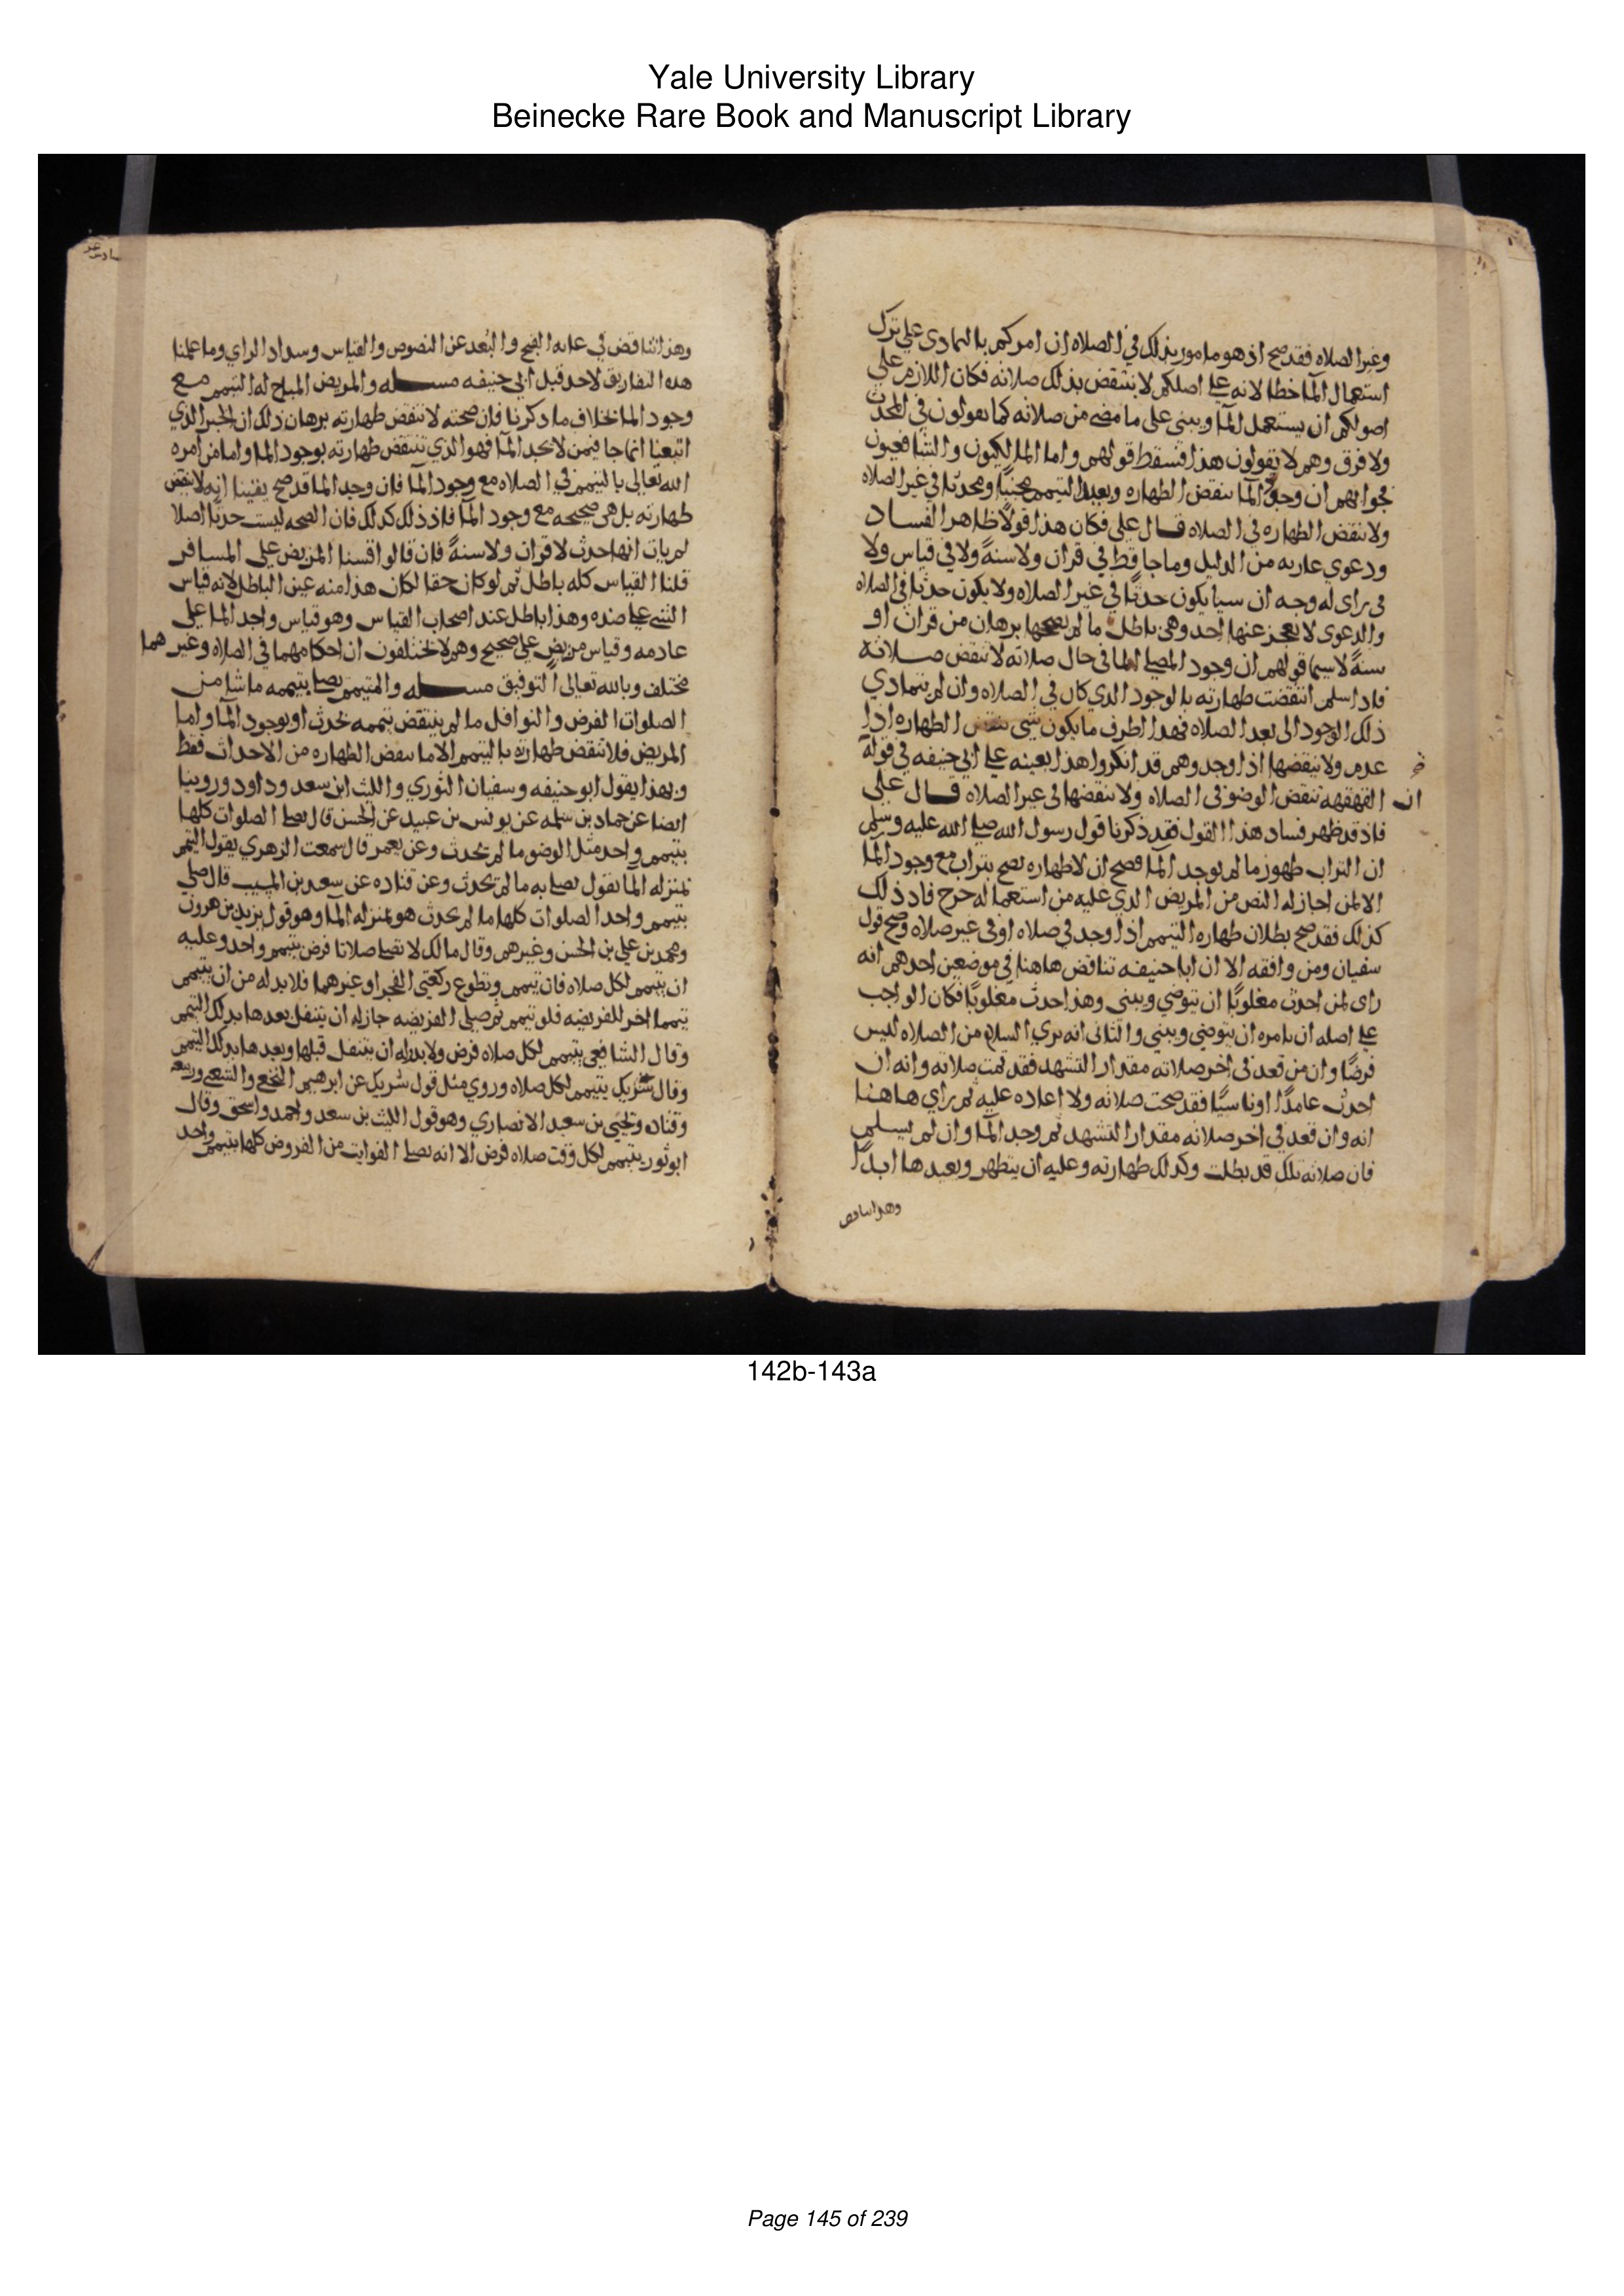 Yale University Library
Beinecke Rare Book and Manuscript Library
وغير الصلاه فقد صح اذ هو مامور بذلك في الصلاه ان امركم بالتمادي علي ترك
استعمال المآ خطا لانه علي اصلكم لا تنتقض بذلك صلاته فكان اللازم علي
اصولكم ان يستعمل المآ ويبني علي ما مضي من صلاته كما تقولون في المحدث
ولا فرق وهم لا يقولون هذا فسقط قولهم واما المالكيون والشافعيون
فجوابهم ان وجود المآ ينقض الطهاره ويعيد المتيمم مجنبًا ومحدثا في غير الصلاه
ولا ينقض الطهاره في الصلاه قال علي فكان هذا قولًا ظاهر الفساد
ودعوي عاريه من الدليل وما جا قط في قران ولا سنةً ولا في قياس ولا
في راي له وجه ان سيا يكون حدثًا في غير الصلاه ولا يكون حدثا في الصلاه
والدعوي لا يعجز عنها احد وهي باطل ما لم يصححها برهان من قران او
سنةً لاسيما قولهم ان وجود المصلي الما في حال صلاته لا تنقض صلاته
فاذا سلم انتقضت طهارته بالوجود الذي كان في الصلاه وان لم يتمادي
ذلك الوجود الي بعد الصلاه فهذا اطرف ما يكون شي ينقض الطهاره اذا
عدم ولا ينقضها اذا وجد وهم قد انكروا هذا بعينه علي ابي حنيفه في قوله
ان القهقهه تنقض الوضو في الصلاه ولا تنقضها في غير الصلاه قال علي
فاذ قد ظهر فساد هذا القول فقد ذكرنا قول رسول الله صلي الله عليه وسلم
ان التراب طهور ما لم يوجد المآ فصح ان لا طهاره تصح بتراب مع وجود المآ
الا لمن اجاز له النص من المريض الذي عليه من استعماله حرج فاذ ذلك
كذلك فقد صح بطلان طهاره المتيمم اذا وجد في صلاه او في غير صلاه وصح قول
سفيان ومن وافقه الا ان ابا حنيفه تناقض هاهنا في موضعين احدهم انه
راي لمن احدث مغلوبًا ان يتوضي ويبني وهذا احدث مغلوبًا فكان الواجب
علي اصله ان يامره ان يتوضي ويبني والثاني انه يري السلام من الصلاه ليس
فرضًا وان من قعد في اخر صلاته مقدار التشهد فقد تمت صلاته وانه ان
احدث عامدًا او ناسيًا فقد صحت صلاته ولا اعاده عليه ثم راي هاهنا
انه وان قعد في اخر صلاته مقدار التشهد ثم وجد المآ وان لم يسلم
فان صلاته تلك قد بطلت وكذلك طهارته وعليه ان يتطهر ويعيدها ابدًا
وهذا تناقض
وهذا تناقض في غايه القبح والبعد عن النصوص والقياس وسداد الراي وما علمنا
هذه التفاريق لاحد قبل ابي حنيفه مسله والمريض المباح له التيمم مع
وجود الما خلاف ما ذكرنا فان صحته لا تنقض طهارته برهان ذلك ان الخبر الذي
اتبعنا انما جا فيمن لا يجد المآ فهو الذي تنتقض طهارته بوجود الما واما من امره
الله تعالي بالتيمم في الصلاه مع وجود المآ فان وجد الما قد صح يقينا انه لا ينقض
طهارته بل هي صحيحه مع وجود المآ فاذ ذلك كذلك فان الصحه ليست حدثا اصلا
لم يات انها حدث لا قران ولا سنةً فان قالوا قسنا المريض علي المسافر
قلنا القياس كله باطل ثم لو كان حقا لكان هذا منه عين الباطل لانه قياس
الشي علي ضده وهذا باطل عند اصحاب القياس وهو قياس واجد الما علي
عادمه وقياس مريض علي صحيح وهم لا يختلفون ان احكامهما في الصلاه وغيرهما
مختلف وبالله تعالي التوفيق مسله والمتيمم يصلي بتيممه ما شا من
الصلوات الفرض والنوافل ما لم ينتقض تيممه بحدث او بوجود المآ واما
المريض فلا تنقض طهارته بالتيمم الا ما ينقض الطهاره من الاحداث فقط
وبهذا يقول ابو حنيفه وسفيان الثوري والليث ابن سعد وداود وروينا
ايضا عن حماد بن سلمه عن يونس بن عبيد عن الحسن قال يصلي الصلوات كلها
بتيمم واحد مثل الوضو ما لم يحدث وعن معمر قال سمعت الزهري يقول التيمم
بمنزله الما يقول يصلي به ما لم يحدث وعن قتاده عن سعيد بن المسيب قال صلي
بتيمم واحد الصلوات كلها ما لم يحدث هو بمنزله المآ وهو قول يزيد بن هرون
ومحمد بن علي بن الحسن وغيرهم وقال مالك لا تصلي صلاتا فرض بتيمم واحد وعليه
ان يتيمم لكل صلاه فان تيمم وتطوع ركعتي الفجر او غيرهما فلا بد له من ان يتيمم
تيمما اخر للفريضه فلو تيمم ثم صلي الفريضه جاز له ان يتنفل بعدها بذلك التيمم
وقال الشافعي يتيمم لكل صلاه فرض ولا بد وله ان يتنفل قبلها وبعدها بذلك التيمم
وقال شريك يتيمم لكل صلاه وروي مثل قول شريك عن ابرهيم النخعي والشعبي وربيعه
وقتاده ويحيي بن سعيد الانصاري وهو قول الليث بن سعد واحمد واسحق وقال
ابو ثور يتيمم لكل وقت صلاه فرض الا انه يصلي الفوايت من الفروض كلها بتيمم واحد
142b-143a
Page 145 of 239